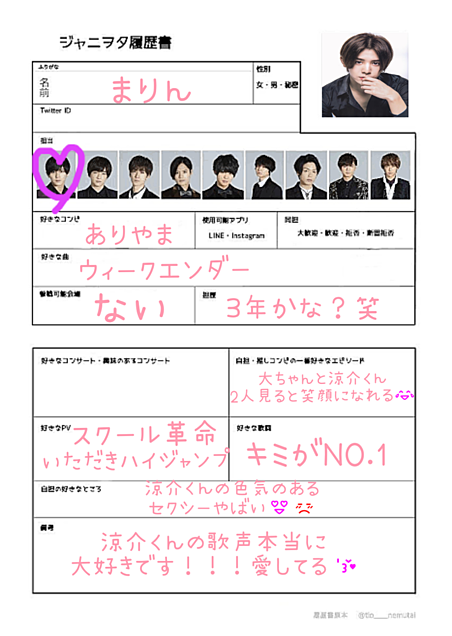 ジャニヲタ履歴書
ふりがな
名前
まりん
性別
女・男・秘密
Twitter ID
担当
好きなコンビ
ありやま
使用可能アプリ
LINE・Instagram
同担
大歓迎・歓迎・拒否・断固拒否
好きな曲
ウィークエンダー
参戦可能会場
ない
担歴
3年かな?笑
好きなコンサート・興味のあるコンサート
自担・推しコンビの一番好きなエピソード
大ちゃんと涼介くん
2人見ると笑顔になれる
好きなPV
スクール革命
いただきハイジャンプ
好きな歌詞
キミがNO.1
自担の好きなところ
涼介くんの色気のある
セクシーやばい
備考
涼介くんの歌声本当に
大好きです!!!愛してる